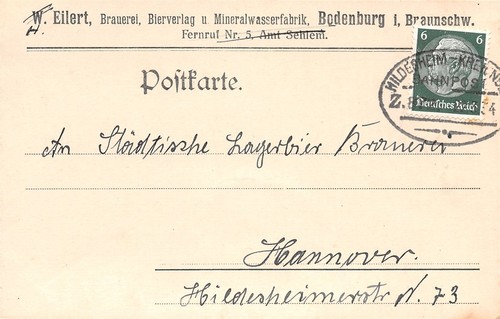 W. Eilert, Brauerei, Bierverlag u. Mineralwasserfabrik, Bodenburg i, Braunschw.
Fernruf Nr. 5, Amt Sehlem.
6 6
Deutsches Reich
HILDESHEIM-
BAHNPOST
Z.
4
Postkarte.
An Städtische Lagerbier Brauerei
Hannover.
Hildesheimerstr N. 73